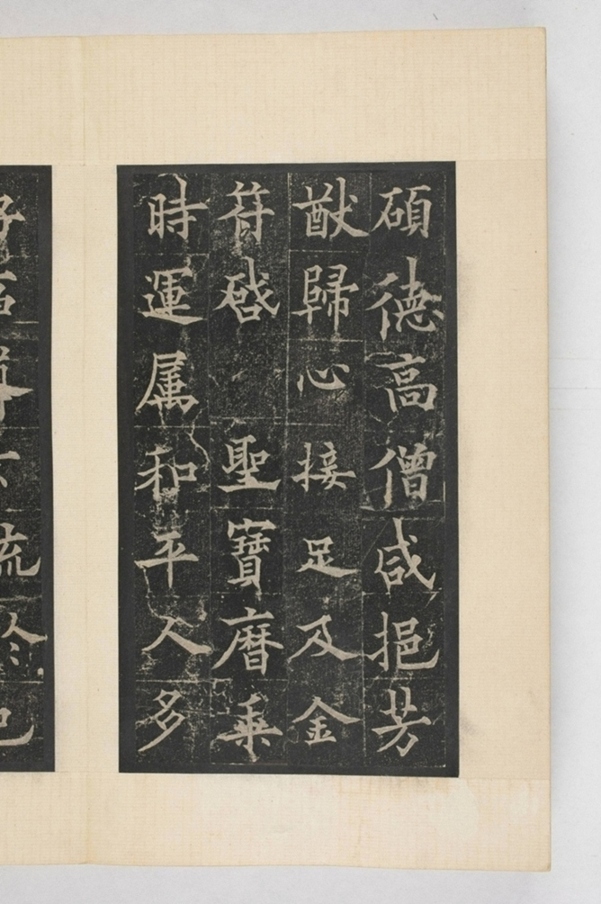 碩德高僧咸挹芳
猷歸心接足及金
符啓 聖寶曆乘
時運属和平人多